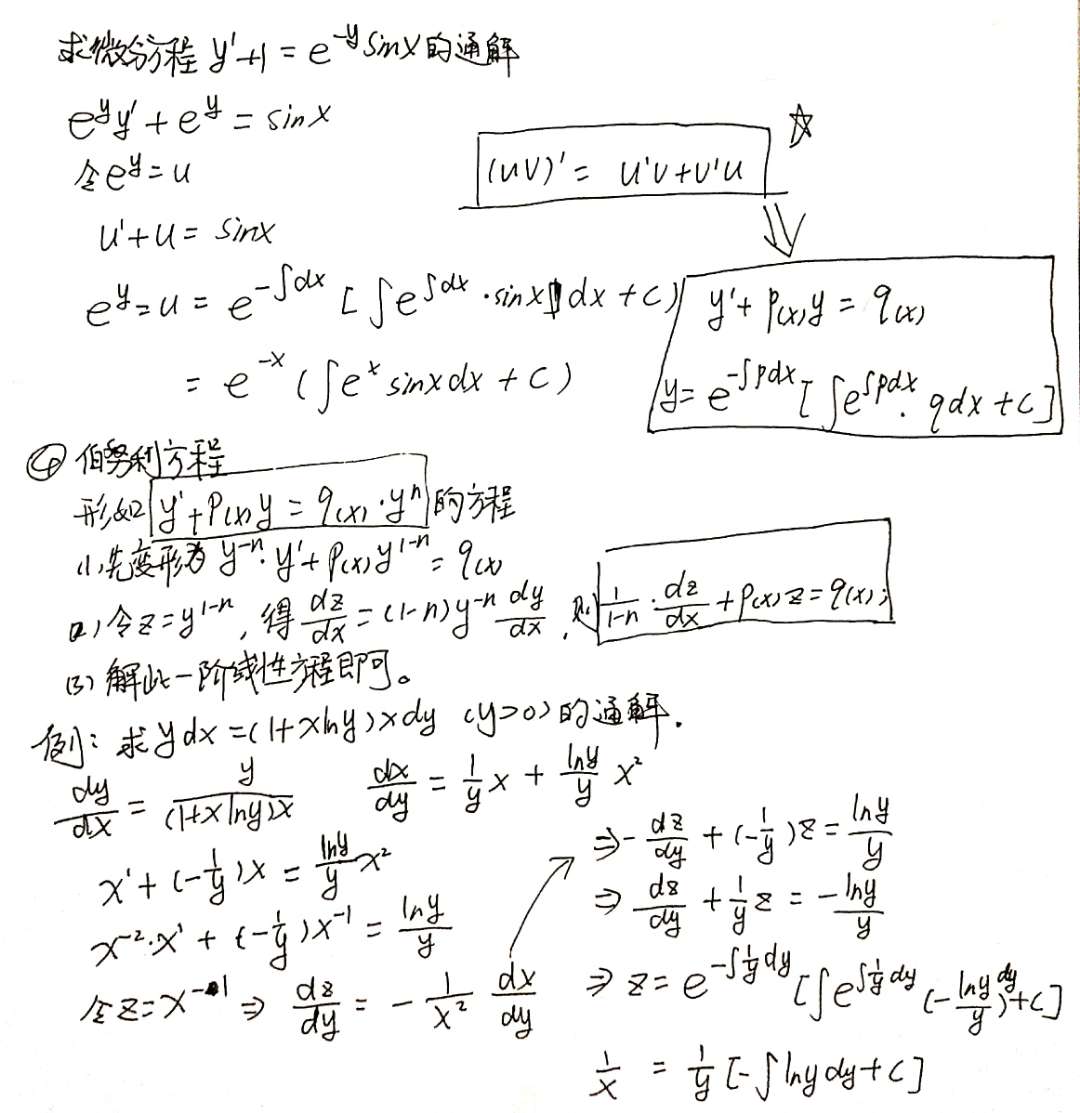 求微分方程 y'+1 = e^{-y} sinx 的通解
e^y y' + e^y = sinx
令 e^y = u
(uv)' = u'v+v'u ☆
⇓
u'+u = sinx
e^y = u = e^{-∫dx} [∫e^{∫dx}·sinx dx + C)
= e^{-x} (∫e^x sinxdx + C)
y' + p(x)y = q(x)
y = e^{-∫pdx} [∫e^{∫pdx}·qdx + C]
④ 伯努利方程
形如 y' + P(x)y = q(x)·y^n 的方程
(1) 先变形为 y^{-n}·y' + P(x)y^{1-n} = q(x)
(2) 令z=y^{1-n}, 得 dz/dx = (1-n)y^{-n} dy/dx, 则 1/(1-n)·dz/dx + P(x)z = q(x);
(3) 解此一阶线性方程即可。
例: 求 ydx = (1+xlny)xdy (y>0) 的通解.
dy/dx = y/((1+xlny)x) dx/dy = 1/y x + lny/y x²
x' + (-1/y)x = lny/y x²
x^{-2}·x' + (-1/y)x^{-1} = lny/y
令z=x^{-1} ⇒ dz/dy = - 1/x² dx/dy
⇒ -dz/dy + (-1/y)z = lny/y
⇒ dz/dy + 1/y z = -lny/y
⇒ z = e^{-∫1/y dy} [∫e^{∫1/y dy} (-lny/y)dy + C]
1/x = 1/y [-∫lnydy + C]